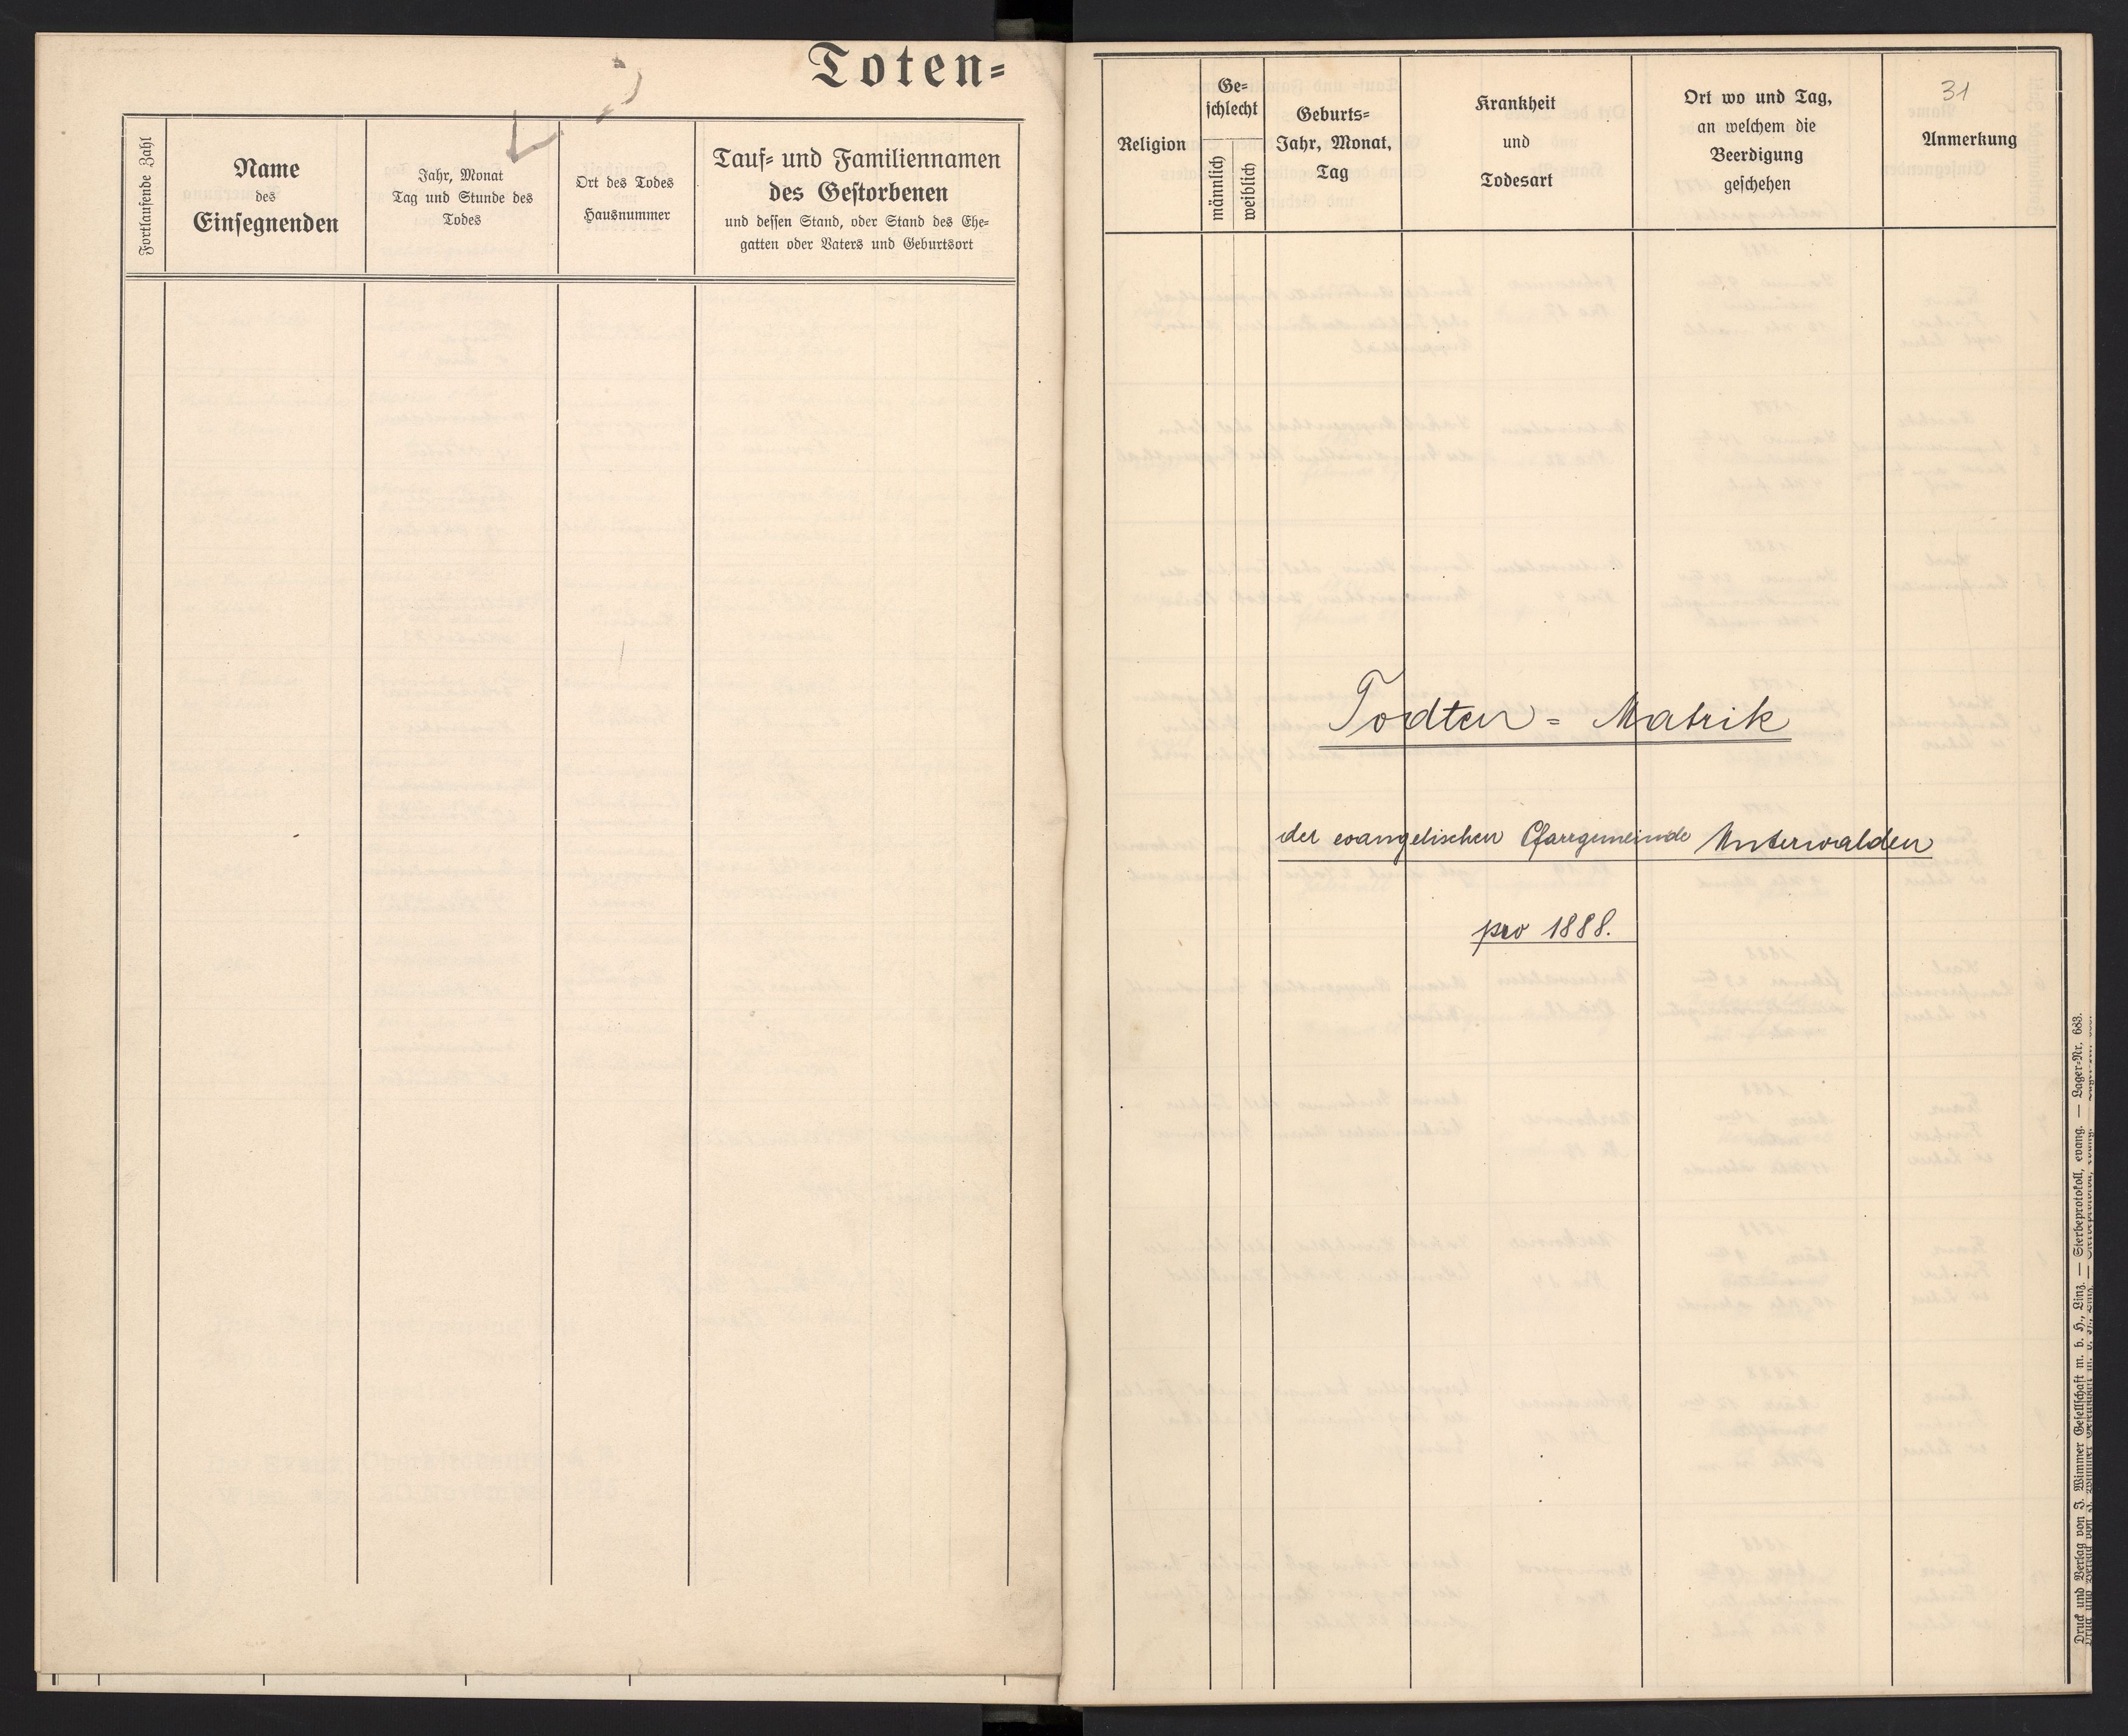 Toten=
Fortlaufende Zahl
Name
des
Einsegnenden
Jahr, Monat
Tag und Stunde des
Todes
Ort des Todes
Hausnummer
Tauf= und Familiennamen
des Gestorbenen
und dessen Stand, oder Stand des Ehe=
gatten oder Vaters und Geburtsort
Religion
Ge=
schlecht
männlich
weiblich
Geburts=
Jahr, Monat,
Tag
Krankheit
und
Todesart
Ort wo und Tag,
an welchem die
Beerdigung
geschehen
31
Anmerkung
Todten = Matrik
der evangelischen Pfarrgemeinde Unterwalden
pro 1888.
Druck und Verlag von J. Wimmer Gesellschaft m. b. H., Linz. — Sterbeprotokoll, evang. — Lager=Nr. 683.